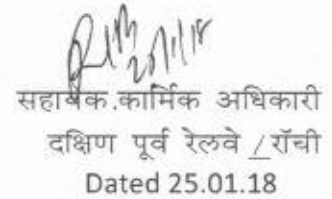 सहायक.कार्मिक अधिकारी
दक्षिण पूर्व रेलवे /रॉची
Dated 25.01.18